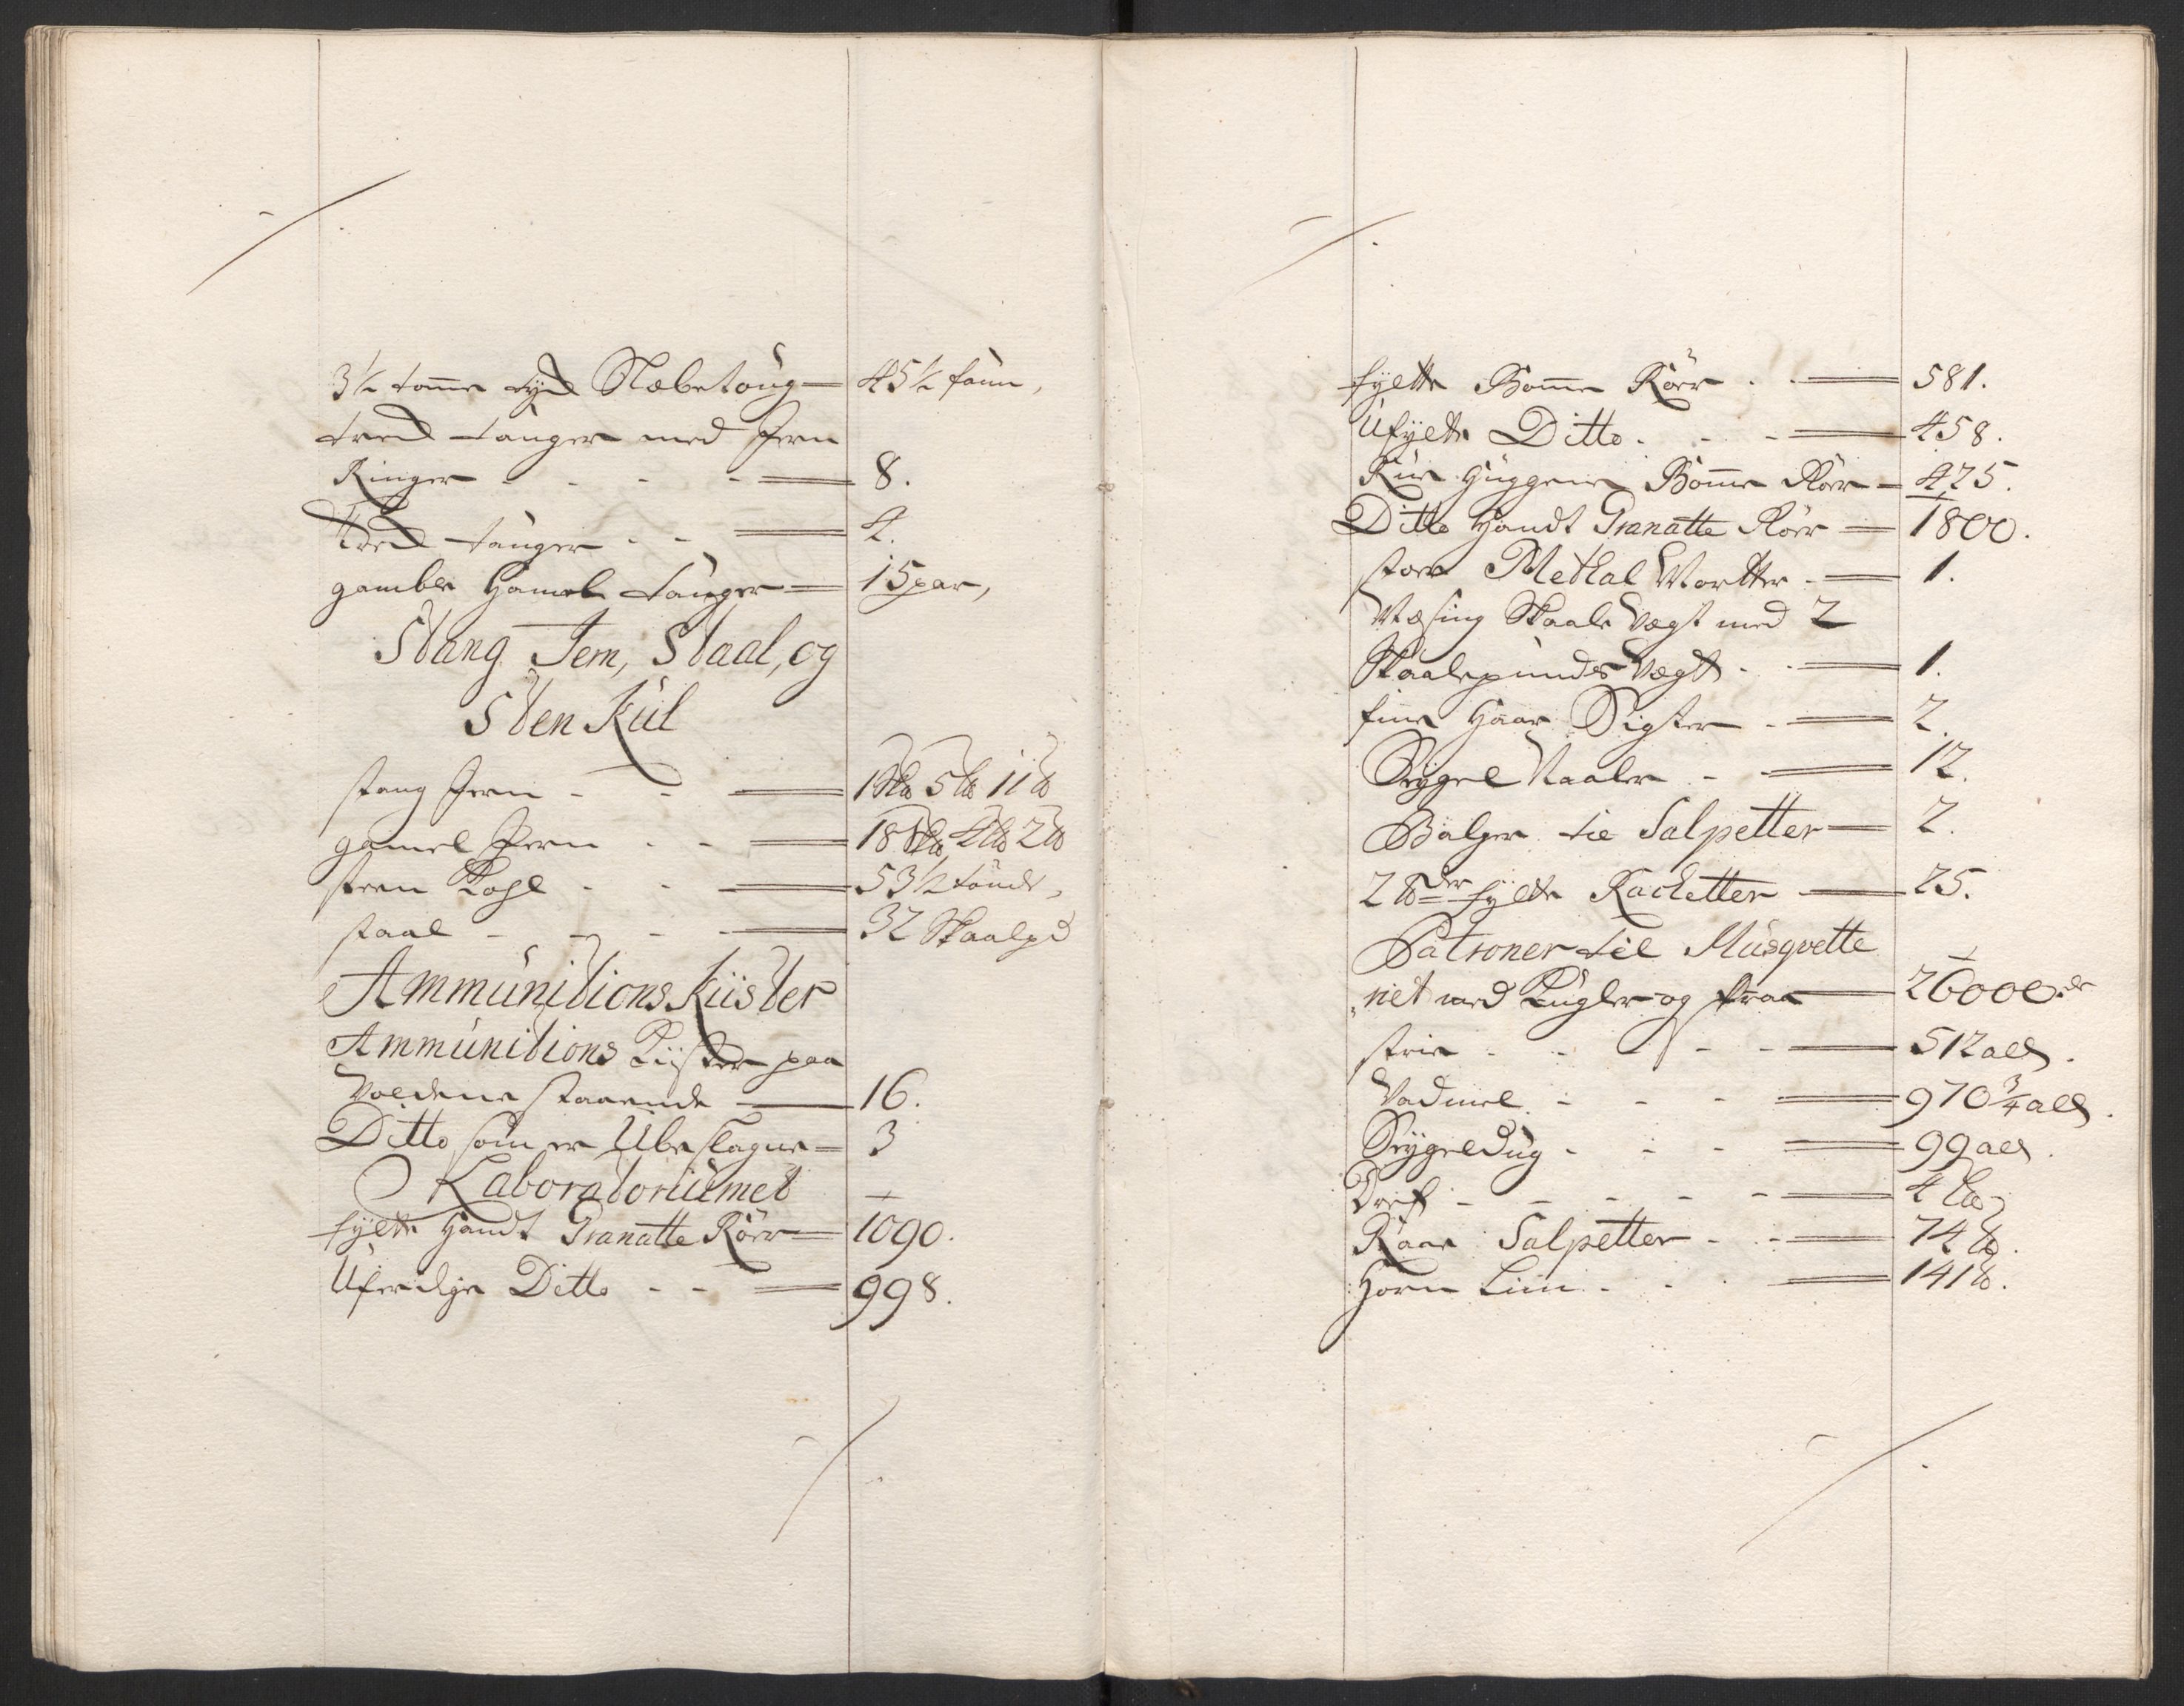 3½ tomme tyk Slæbetoug 45½ faun,
tred tanger med Jern
Ringer 8.
Tred tanger 4.
gamble Hamel tanger 15 par,
Stang Jern, Staal, og
Sten Kul
stang Jern 1 S℔ 5 L℔ 11 ℔
gamel Jern 18 S℔ 4 L℔ 2 ℔
steen Kohl 53½ tønde,
staal 32 Skaalpd
Ammunitions Kiister
Ammunitions Kiister paa
Voldene staaende 16.
Ditto som er Ubeslagne 3
Laboratoriumet
fylte Handt Granatte Rör 1090.
Uferdige Ditto 998.
fylte Bomme Rör 581.
Ufylte Ditto 458.
Rue Huggene Bomme Rör 425.
Ditto Handt Granatte Rör 1800.
stor Methal Mortter 1.
Mæsing Skaale Vægt med 2
Skaalepundes Vægt 1.
fine Haar Sigter 2.
Seygel Naaler 12.
Balger til Salpetter 2.
2 ℔der fylte Racketter 25.
Patroner til Musqvette
riet med Kugler og Kraa 26000de
strie 512 all.
Vadmel 970¾ all.
Seygeldug 99 all.
Dref 4 L℔
Raae Salpetter 74 ℔.
Horn Liim 141 ℔.